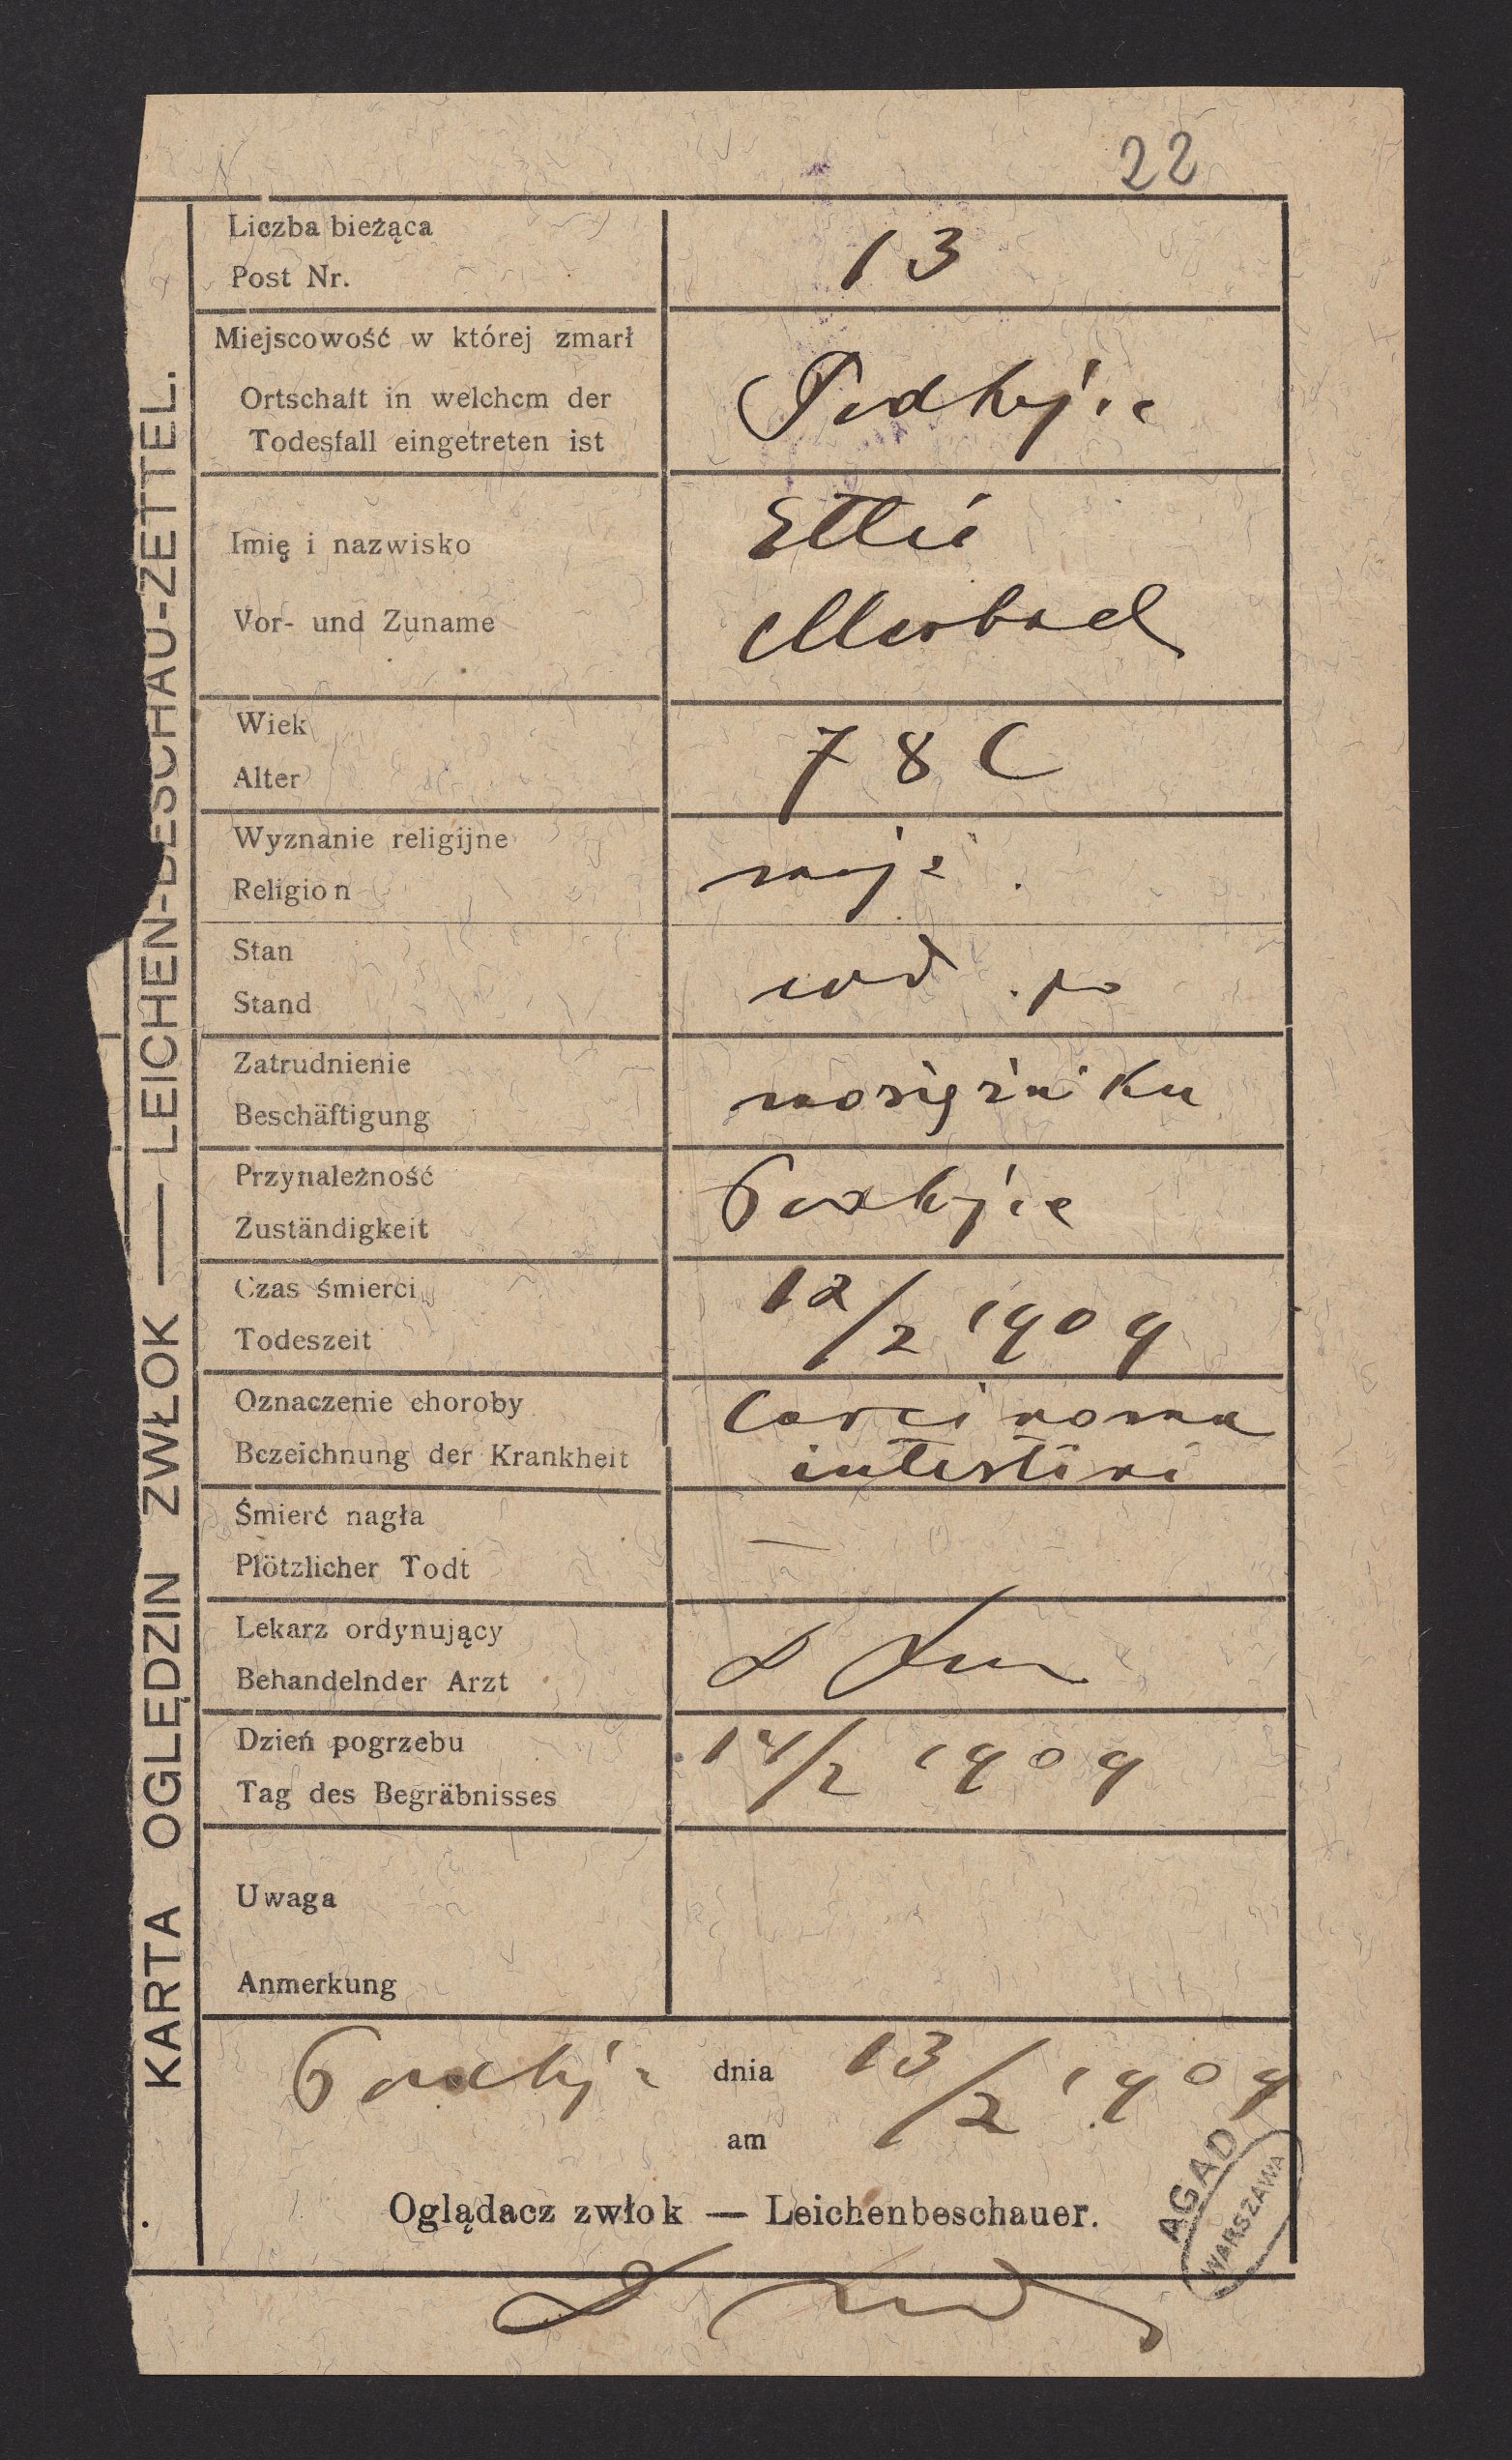 22
KARTA OGLĘDZIN ZWŁOK — LEICHEN-BESCHAU-ZETTEL.
Liczba bieżąca
Post Nr.
13
Miejscowość w której zmarł
Ortschaft in welchem der
Todesfall eingetreten ist
Podhajce
Imię i nazwisko
Vor- und Zuname
Ettie
Wiek
Alter
78
Wyznanie religijne
Religion
mojż.
Stan
Stand
wd. po
Zatrudnienie
Beschäftigung
mosiężniku
Przynależność
Zuständigkeit
Podhajce
Czas śmierci
Todeszeit
12/2 1909
Oznaczenie choroby
Bezeichnung der Krankheit
Carcinoma
intestini
Śmierć nagła
Plötzlicher Todt
—
Lekarz ordynujący
Behandelnder Arzt
Dzień pogrzebu
Tag des Begräbnisses
14/2 1909
Uwaga
Anmerkung
dnia 13/2 1909
am
Oglądacz zwłok — Leichenbeschauer.
AGAD
WARSZAWA